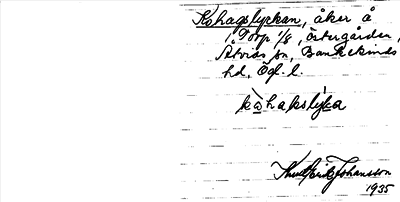 Kohagslyckan, åker å
Torp 1/8, Östergården,
Åtvids sn, Bankekinds
hd, Ögl. l.
kòhakslýka
Johansson
1935